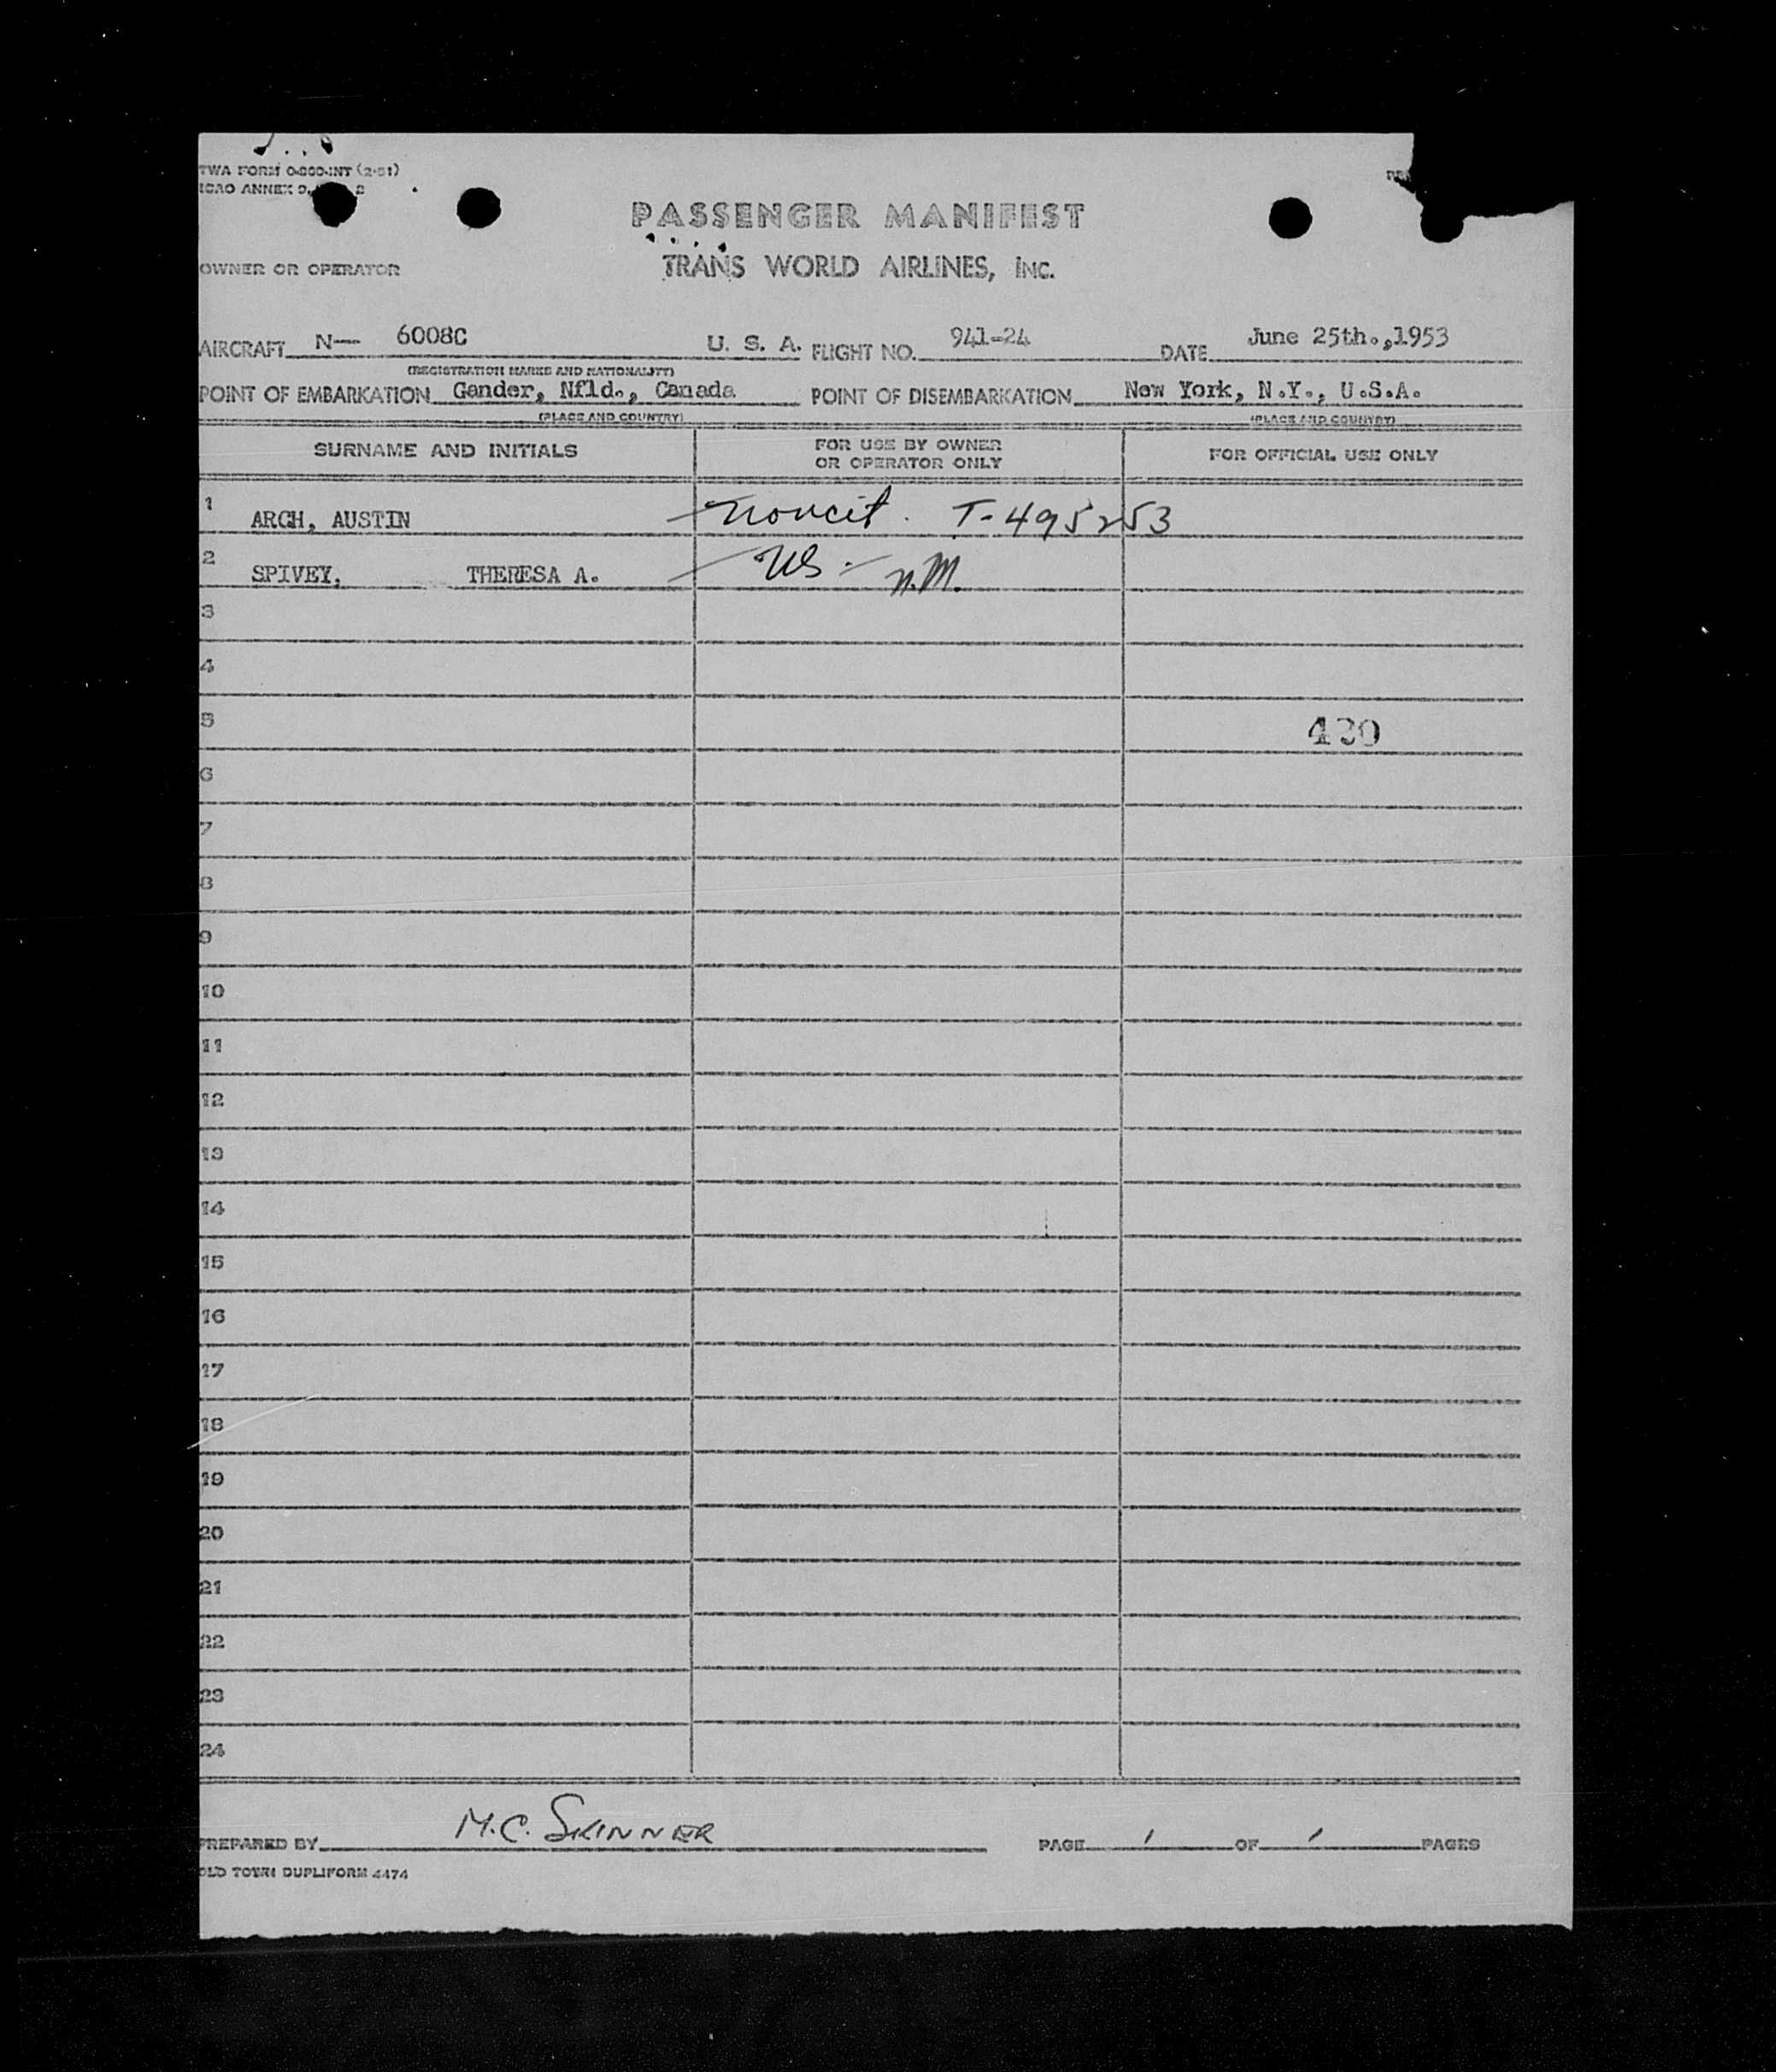 TWA FORM
ICAO ANNEX 9,
PASSENGER MANIFEST
OWNER OR OPERATOR TRANS WORLD AIRLINES, INC.
AIRCRAFT N— 6008C U. S. A. FLIGHT NO. 941-24 DATE June 25th.,1953
(REGISTRATION MARKS AND NATIONALITY)
POINT OF EMBARKATION Gander, Nfld., Canada POINT OF DISEMBARKATION New York, N.Y., U.S.A.
(PLACE AND COUNTRY) (PLACE AND COUNTRY)
SURNAME AND INITIALS FOR USE BY OWNER OR OPERATOR ONLY FOR OFFICIAL USE ONLY
1 ARCH, AUSTIN Noncit. T-495253
2 SPIVEY, THERESA A. US - N.M.
3
4
5 430
6
7
8
9
10
11
12
13
14
15
16
17
18
19
20
21
22
23
24
PREPARED BY M.C. SKINNER PAGE 1 OF 1 PAGES
OLD TOWN DUPLIFORM 4474